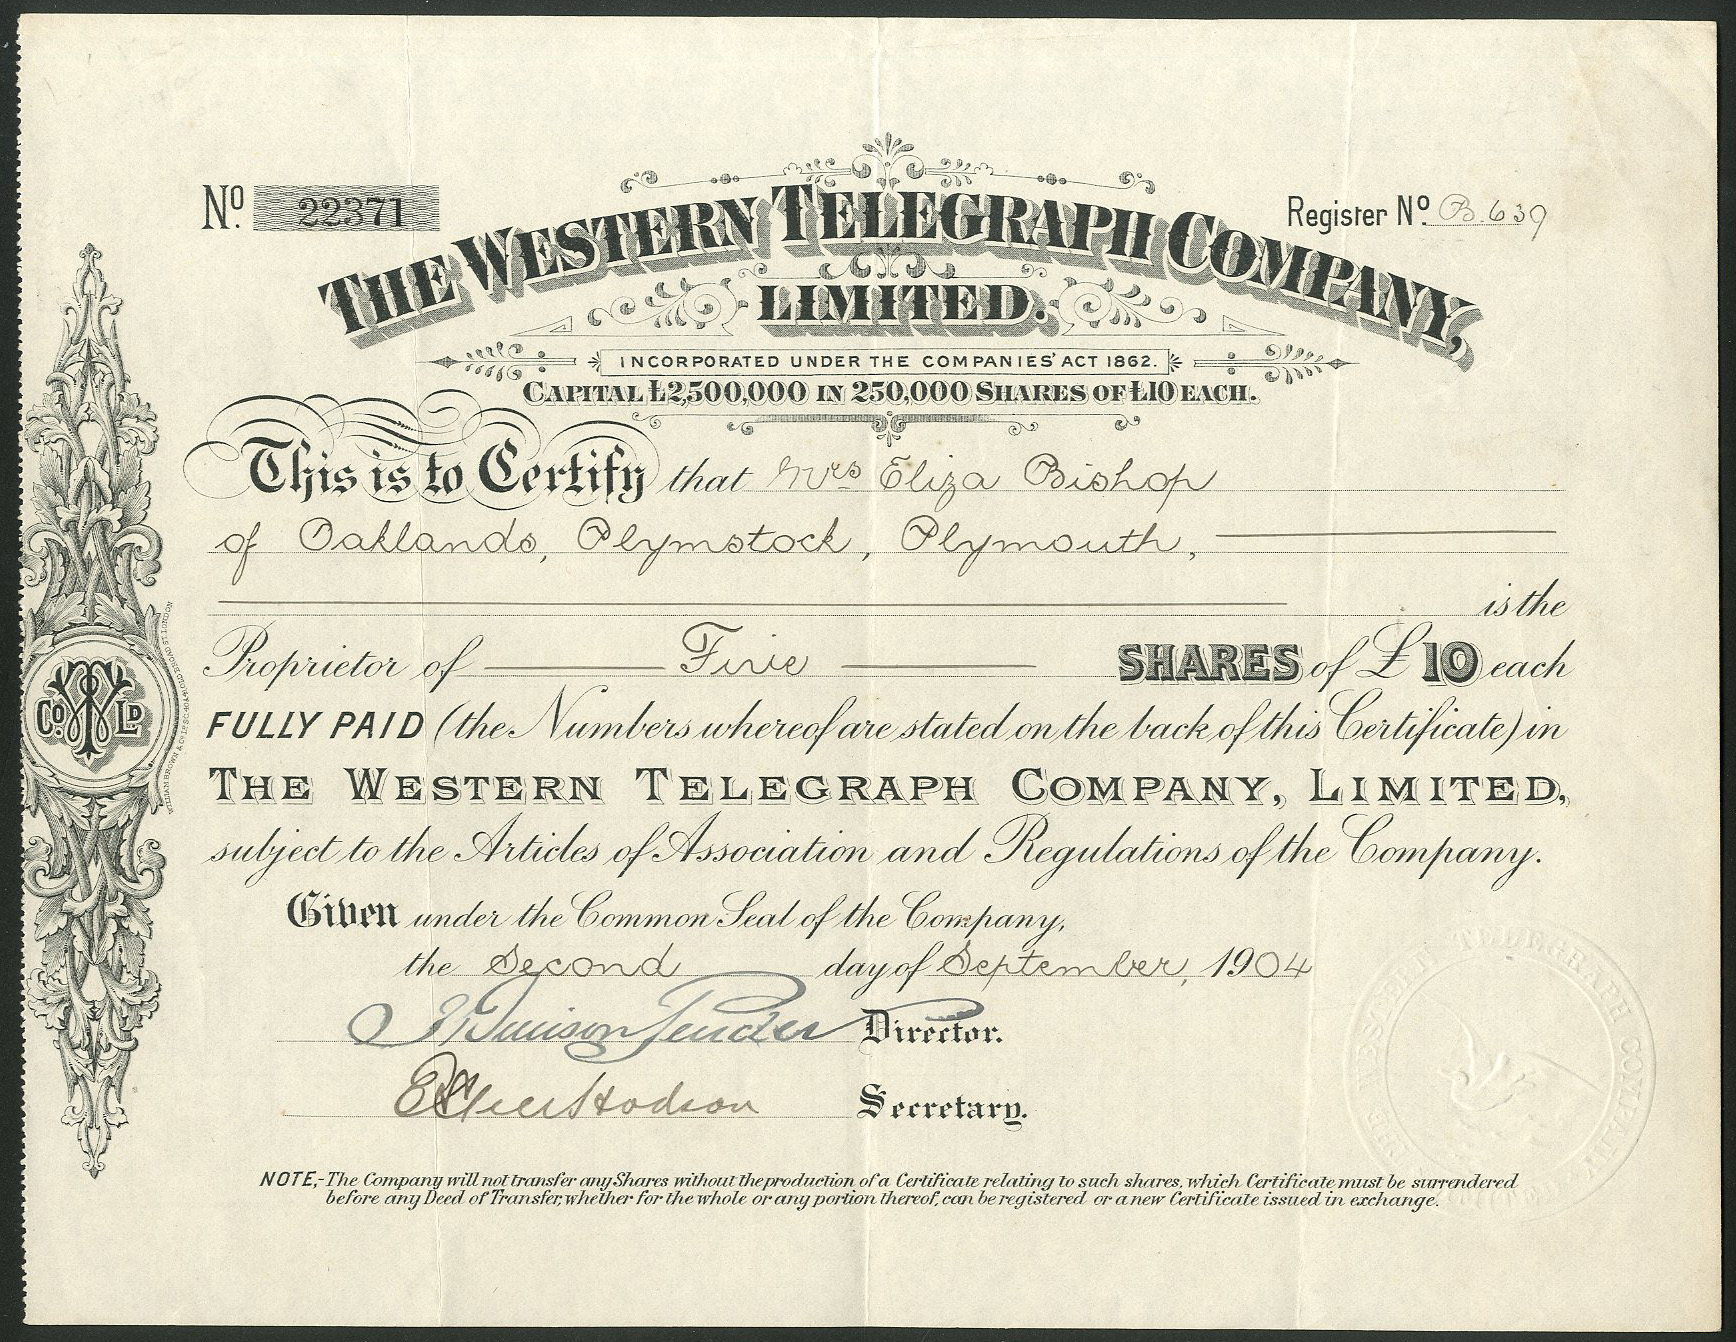 No. 22371
Register No. B.639
THE WESTERN TELEGRAPH COMPANY,
LIMITED.
INCORPORATED UNDER THE COMPANIES' ACT 1862.
CAPITAL £2,500,000 IN 250,000 SHARES OF £10 EACH.
This is to Certify that Mrs Eliza Bishop
of Oaklands, Plymstock, Plymouth,
is the
Proprietor of Five SHARES of £10 each
FULLY PAID (the Numbers whereof are stated on the back of this Certificate) in
THE WESTERN TELEGRAPH COMPANY, LIMITED,
subject to the Articles of Association and Regulations of the Company.
Given under the Common Seal of the Company,
the Second day of September, 1904
Denison Pender Director.
Hodson Secretary.
NOTE,-The Company will not transfer any Shares without the production of a Certificate relating to such shares, which Certificate must be surrendered
before any Deed of Transfer, whether for the whole or any portion thereof, can be registered or a new Certificate issued in exchange.
Co. WT Ld.
THE WESTERN TELEGRAPH COMPANY